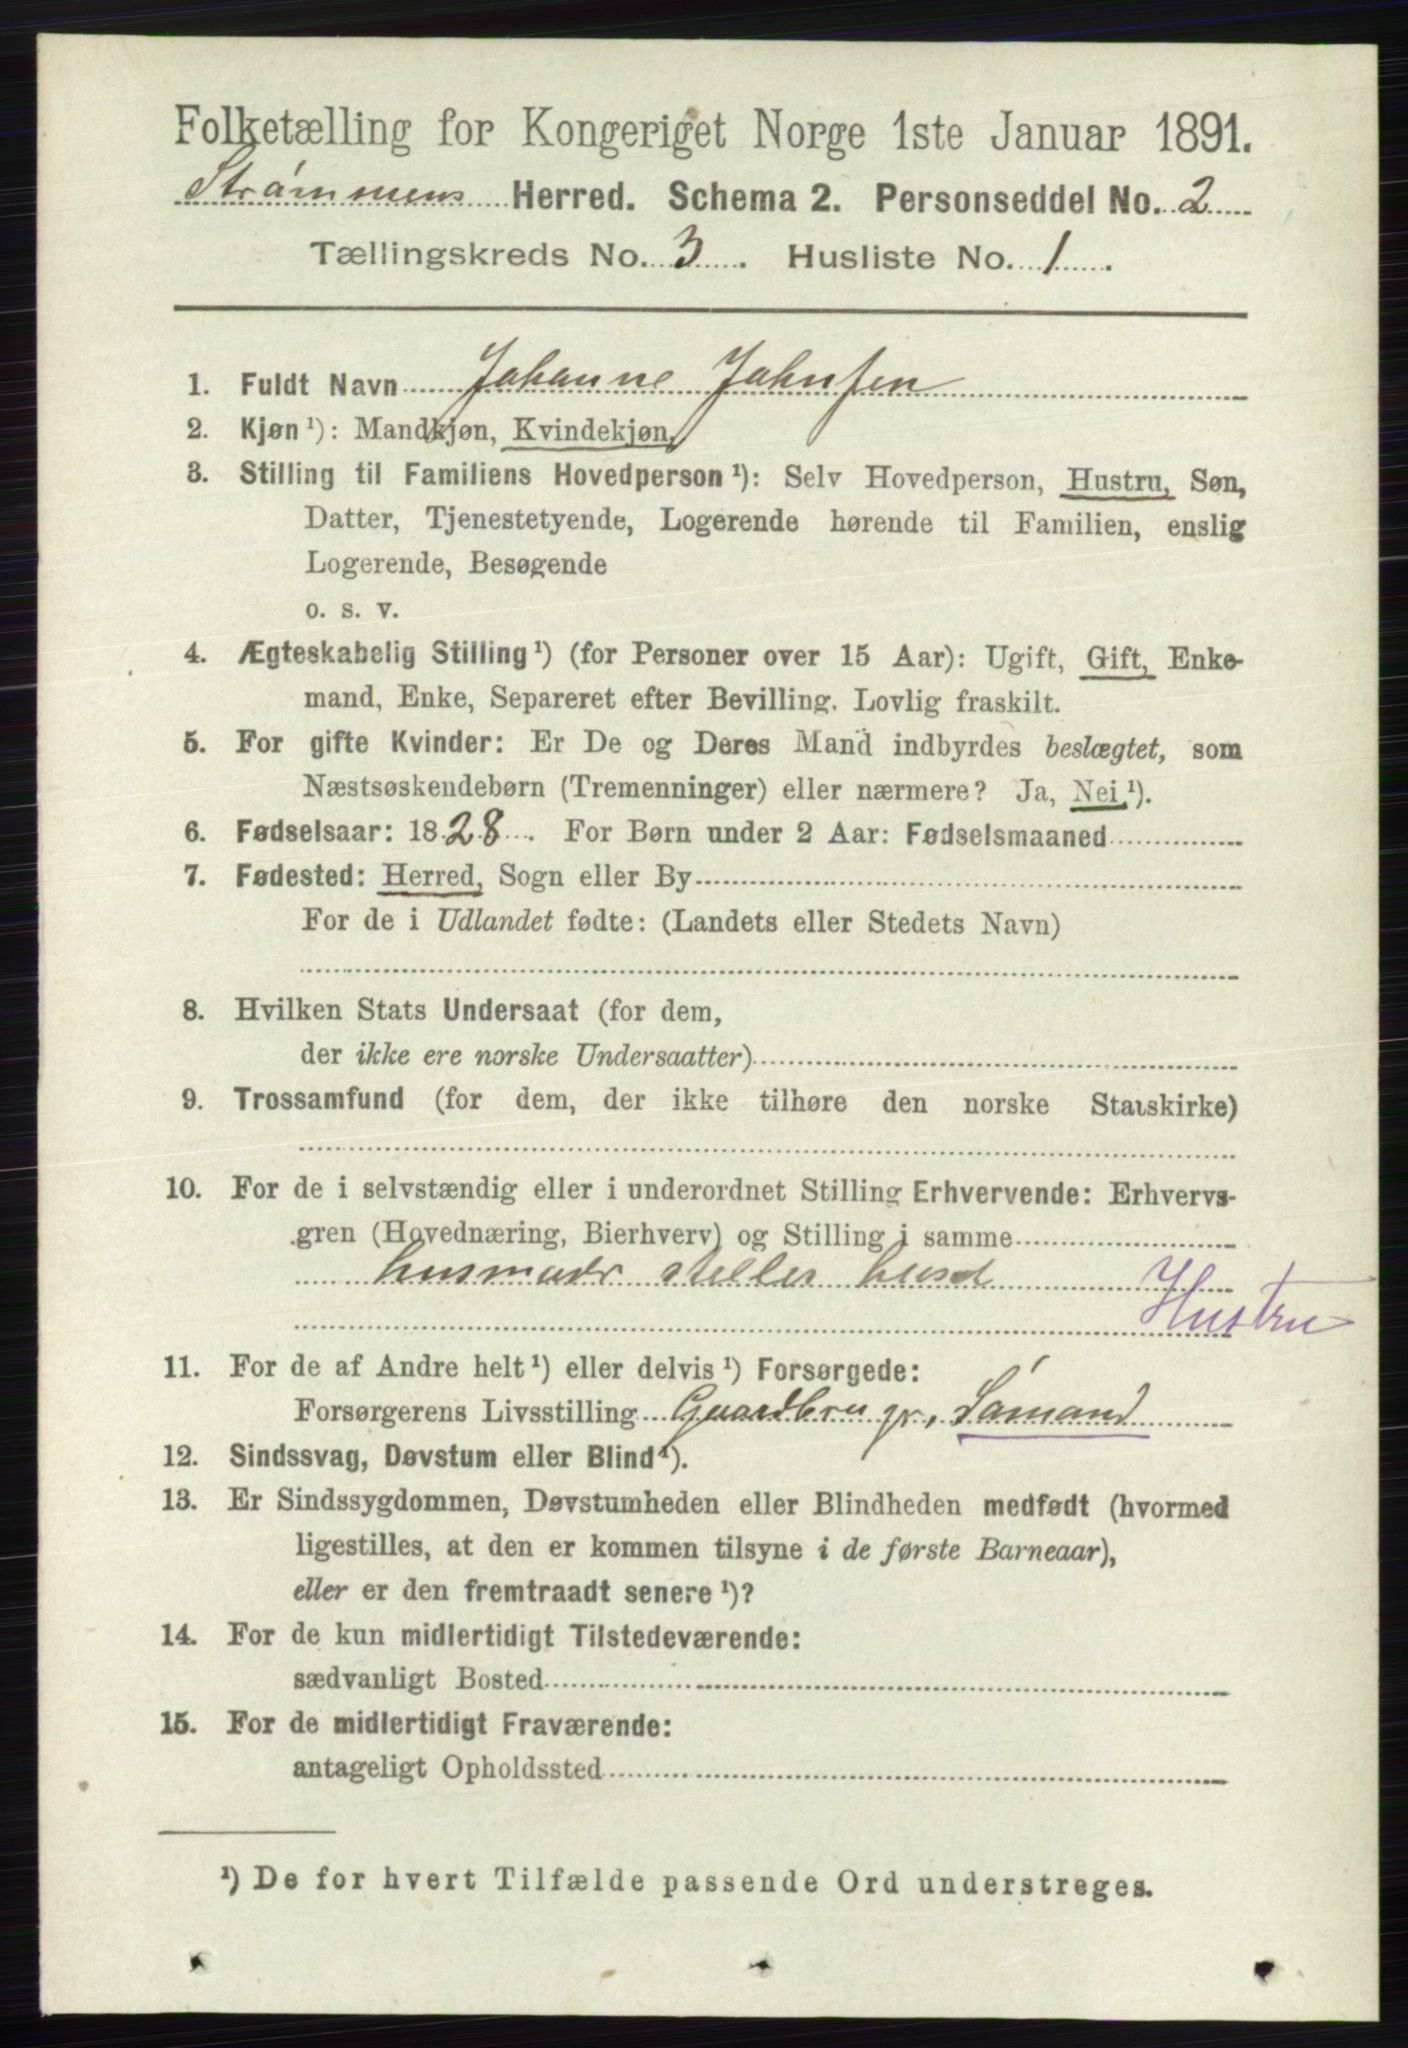 Folketælling for Kongeriget Norge 1ste Januar 1891.
Strømmens Herred. Schema 2. Personseddel No. 2
Tællingskreds No. 3. Husliste No. 1.
1. Fuldt Navn Johanne Johnsen
2. Kjøn ¹): Mandkjøn, Kvindekjøn,
3. Stilling til Familiens Hovedperson ¹): Selv Hovedperson, Hustru, Søn,
Datter, Tjenestetyende, Logerende hørende til Familien, enslig
Logerende, Besøgende
o. s. v.
4. Ægteskabelig Stilling ¹) (for Personer over 15 Aar): Ugift, Gift, Enke-
mand, Enke, Separeret efter Bevilling. Lovlig fraskilt.
5. For gifte Kvinder: Er De og Deres Mand indbyrdes beslægtet, som
Næstsøskendebørn (Tremenninger) eller nærmere? Ja, Nei ¹).
6. Fødselsaar: 1828. For Børn under 2 Aar: Fødselsmaaned
7. Fødested: Herred, Sogn eller By
For de i Udlandet fødte: (Landets eller Stedets Navn)
8. Hvilken Stats Undersaat (for dem,
der ikke ere norske Undersaatter)
9. Trossamfund (for dem, der ikke tilhøre den norske Statskirke)
10. For de i selvstændig eller i underordnet Stilling Erhvervende: Erhvervs-
gren (Hovednæring, Bierhverv) og Stilling i samme
husmodr steller huset
Hustru
11. For de af Andre helt ¹) eller delvis ¹) Forsørgede:
Forsørgerens Livsstilling Gaardbrugr, Sømand
12. Sindssvag, Døvstum eller Blind ¹).
13. Er Sindssygdommen, Døvstumheden eller Blindheden medfødt (hvormed
ligestilles, at den er kommen tilsyne i de første Barneaar),
eller er den fremtraadt senere ¹)?
14. For de kun midlertidigt Tilstedeværende:
sædvanligt Bosted
15. For de midlertidigt Fraværende:
antageligt Opholdssted
¹) De for hvert Tilfælde passende Ord understreges.